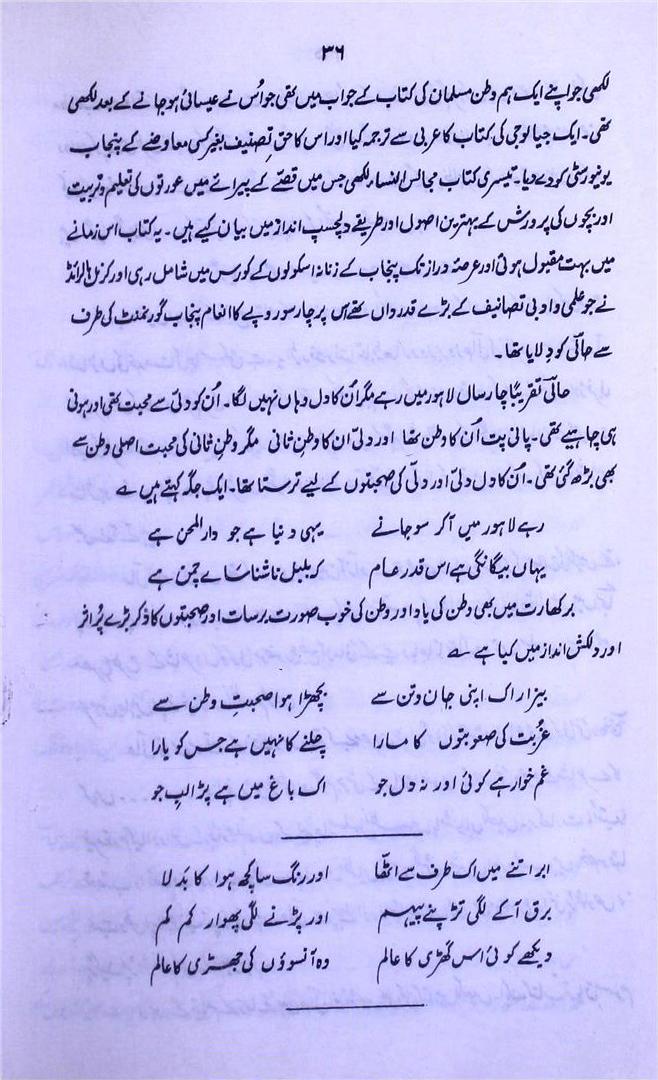 ۳۶
لکھی جو اپنے ایک ہم وطن مسلمان کی کتاب کے جواب میں تھی جو اُس نے عیسائی ہو جانے کے بعد لکھی
تھی۔ ایک جیالوجی کی کتاب کا عربی سے ترجمہ کیا اور اس کا حق تصنیف بغیر کسی معاوضے کے پنجاب
یونیورسٹی کو دے دیا۔ تیسری کتاب مجالس النساء لکھی جس میں قصّے کے پیرائے میں عورتوں کی تعلیم و تربیت
اور بچوں کی پرورش کے بہترین اصول اور طریقے دلچسپ انداز میں بیان کیے ہیں۔ یہ کتاب اس زمانے
میں بہت مقبول ہوئی اور عرصۂ دراز تک پنجاب کے زنانہ اسکولوں کے کورس میں شامل رہی اور کرنل ہالرائڈ
نے جو علمی و ادبی تصانیف کے بڑے قدرداں تھے اس پر چار سو روپے کا انعام پنجاب گورنمنٹ کی طرف
سے حالی کو دلایا تھا۔
حالی تقریباً چار سال لاہور میں رہے مگر اُن کا دل وہاں نہیں لگا۔ اُن کو دلّی سے محبت تھی اور ہونی
ہی چاہیے تھی۔ پانی پت اُن کا وطن تھا اور دلّی ان کا وطنِ ثانی مگر وطنِ ثانی کی محبت اصلی وطن سے
بھی بڑھ گئی تھی۔ اُن کا دل دلّی اور دلّی کی صحبتوں کے لیے ترستا تھا۔ ایک جگہ کہتے ہیں ؎
رہے لاہور میں آکر سو جانے یہی دنیا ہے جو دار المحن ہے
یہاں بیگانگی ہے اس قدر عام کہ بلبل ناشناسائے چمن ہے
برکھارت میں بھی وطن کی یاد اور وطن کی خوب صورت برسات اور صحبتوں کا ذکر بڑے پُر اثر
اور دلکش انداز میں کیا ہے ؎
بیزار اک اپنی جان و تن سے بچھڑا ہوا صحبتِ وطن سے
غربت کی صعوبتوں کا مارا چلنے کا نہیں ہے جس کو یارا
غم خوار ہے کوئی اور نہ دل جو اک باغ میں ہے پڑا لبِ جو
ابر اتنے میں اک طرف سے اٹھّا اور رنگ سا کچھ ہوا کا بدلا
برق آکے لگی تڑپنے پیہم اور پڑنے لگی پھوار کم کم
دیکھے کوئی اس گھڑی کا عالم وہ آنسوؤں کی جھڑی کا عالم